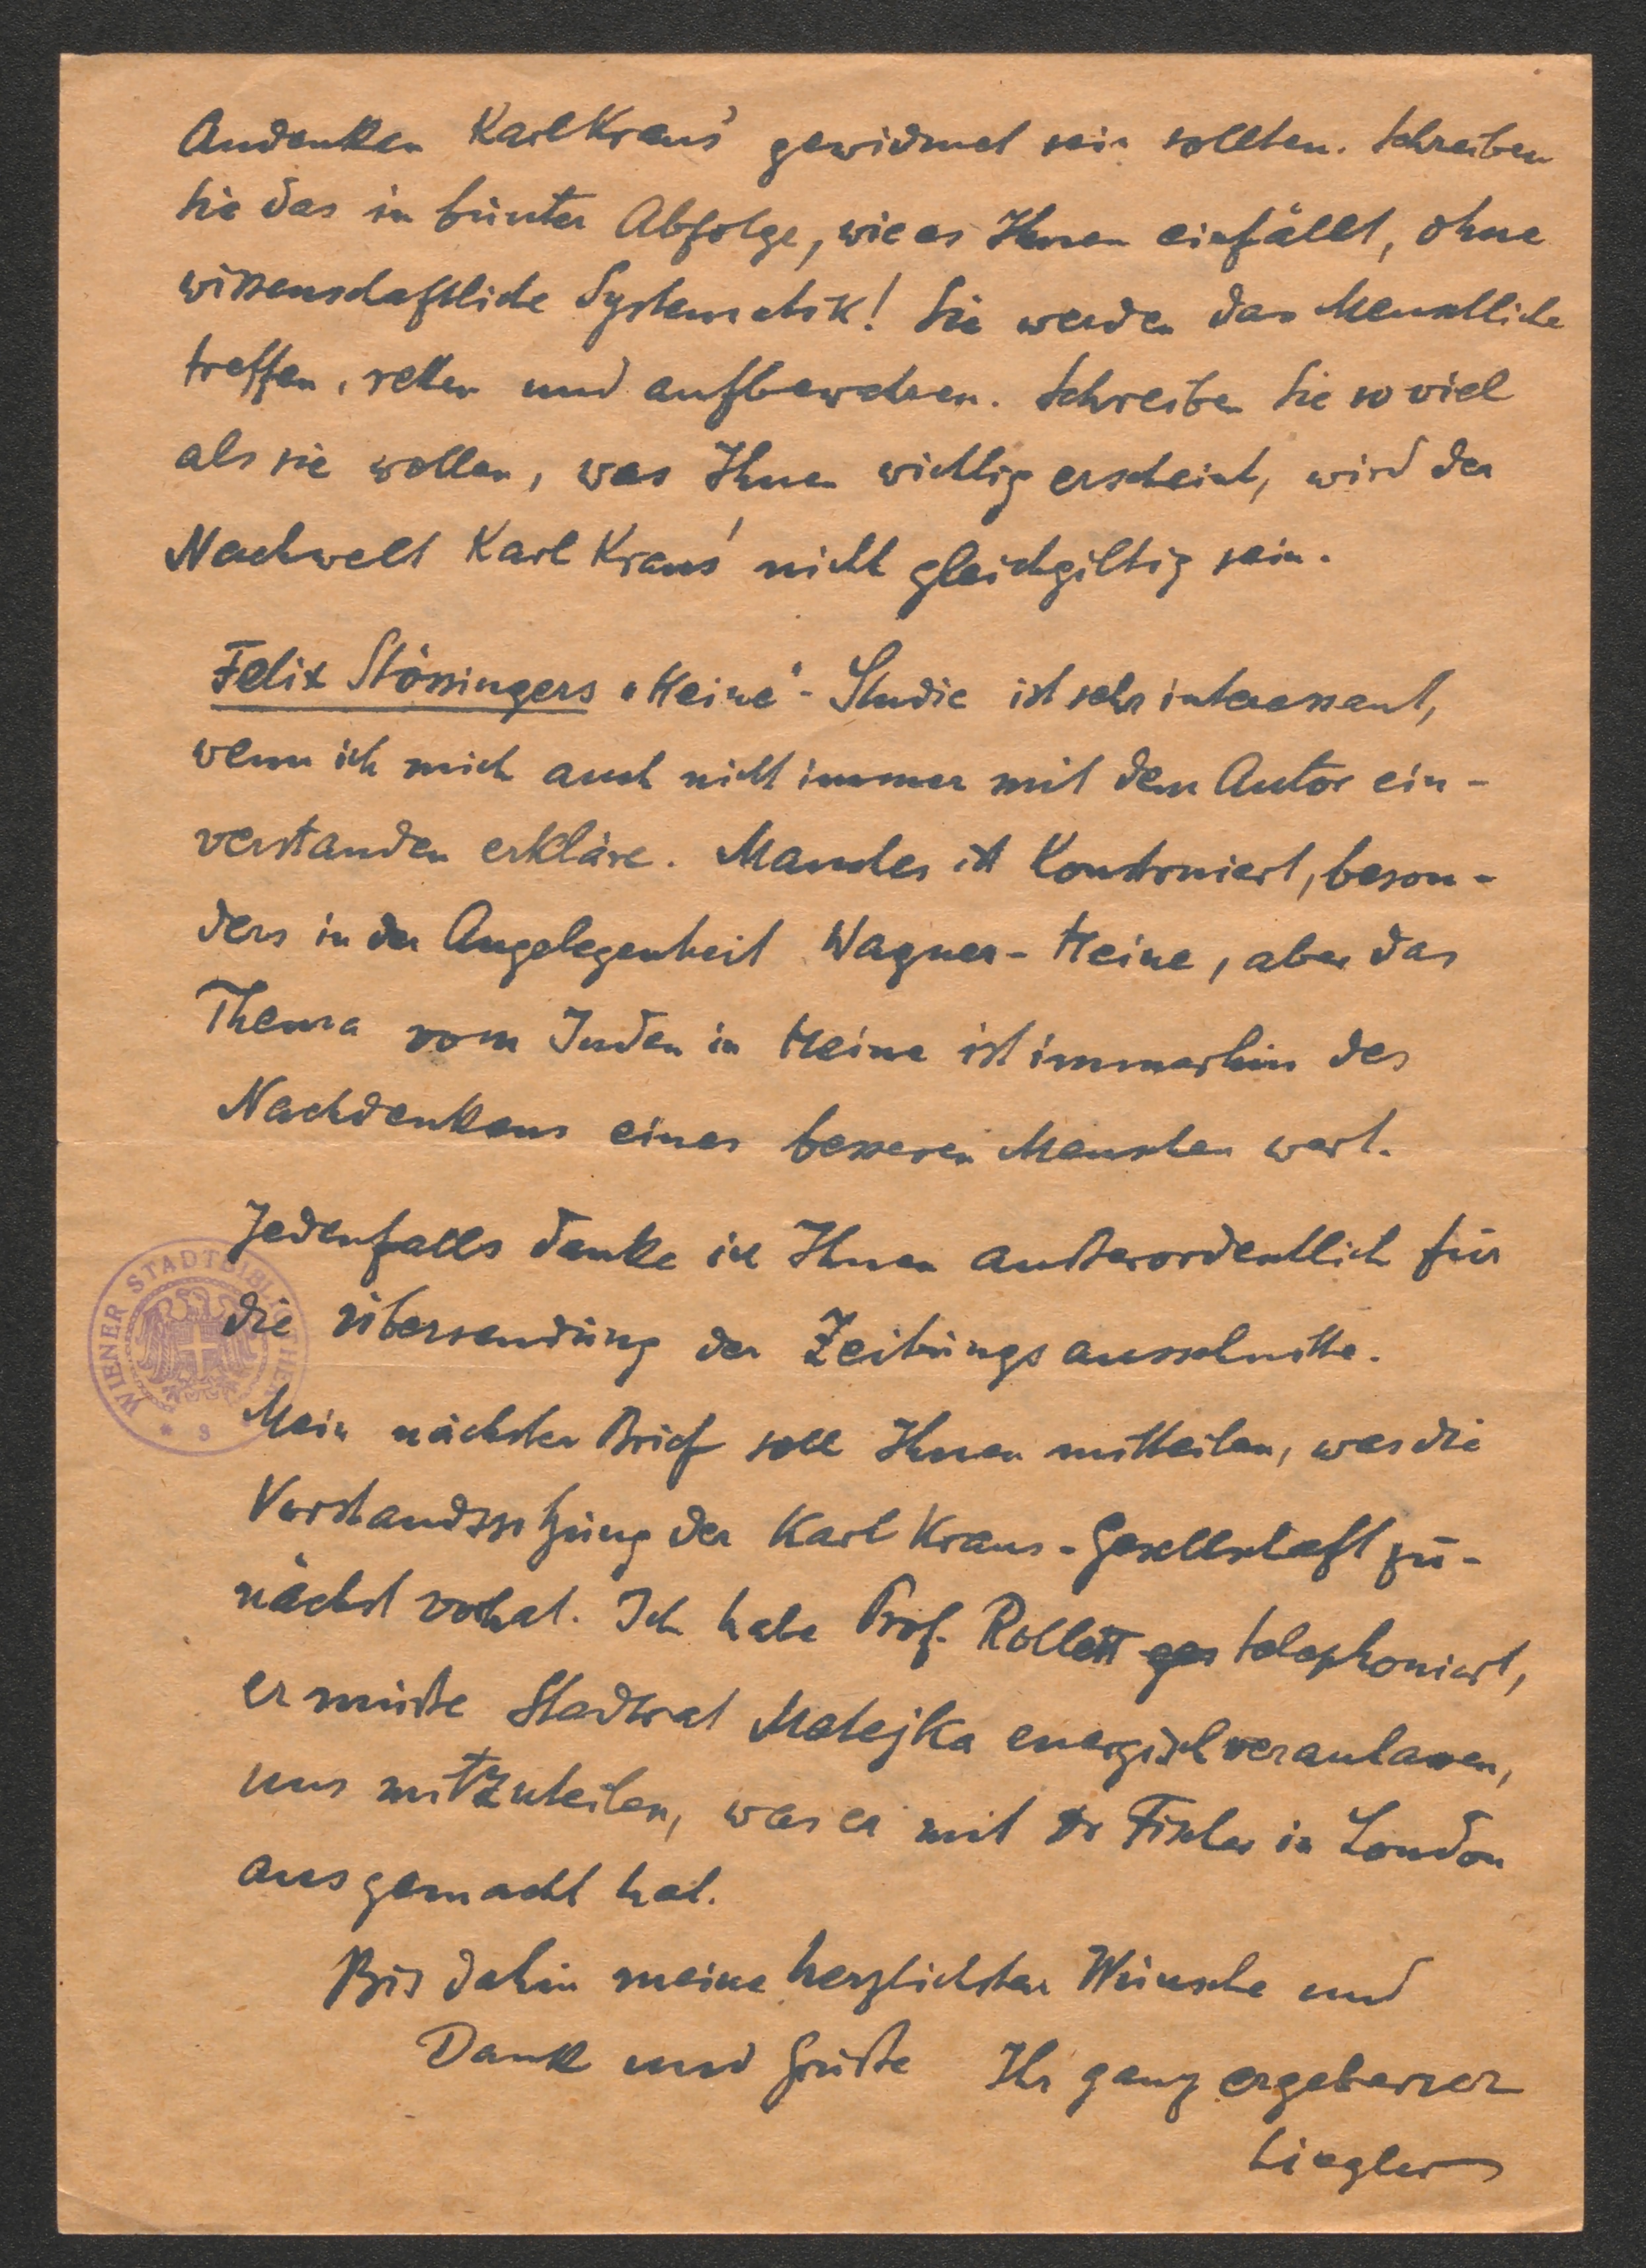 Andenken Karl Kraus' gewidmet sein sollten. Schreiben
Sie das in bunter Abfolge, wie es Ihnen einfällt, ohne
wissenschaftliche Systematik! Sie werden das Menschliche
treffen, retten und aufbewahren. Schreiben Sie so viel
als sie wollen, was Ihnen wichtig erscheint, wird der
Nachwelt Karl Kraus' nicht gleichgiltig sein.
Felix Stössingers „Heine"-Studie ist sehr interessant,
wenn ich mich auch nicht immer mit dem Autor ein-
verstanden erkläre. Manches ist konstruiert, beson-
ders in der Angelegenheit Wagner-Heine, aber das
Thema vom Juden in Heine ist immerhin des
Nachdenkens eines besseren Menschen wert.
Jedenfalls danke ich Ihnen außerordentlich für
die Übersendung der Zeitungsausschnitte.
WIENER STADTBIBLIOTHEK
* 8
Mein nächster Brief soll Ihnen mitteilen, was die
Vorstandssitzung der Karl Kraus-Gesellschaft zu-
nächst vorhat. Ich habe Prof. Rollett telephoniert,
er müßte Stadtrat Matejka energisch veranlassen,
uns mitzuteilen, was er mit Dr Fischer in London
ausgemacht hat.
Bis dahin meine herzlichsten Wünsche und
Dank und Grüße Ihr ganz ergebener
Liegler